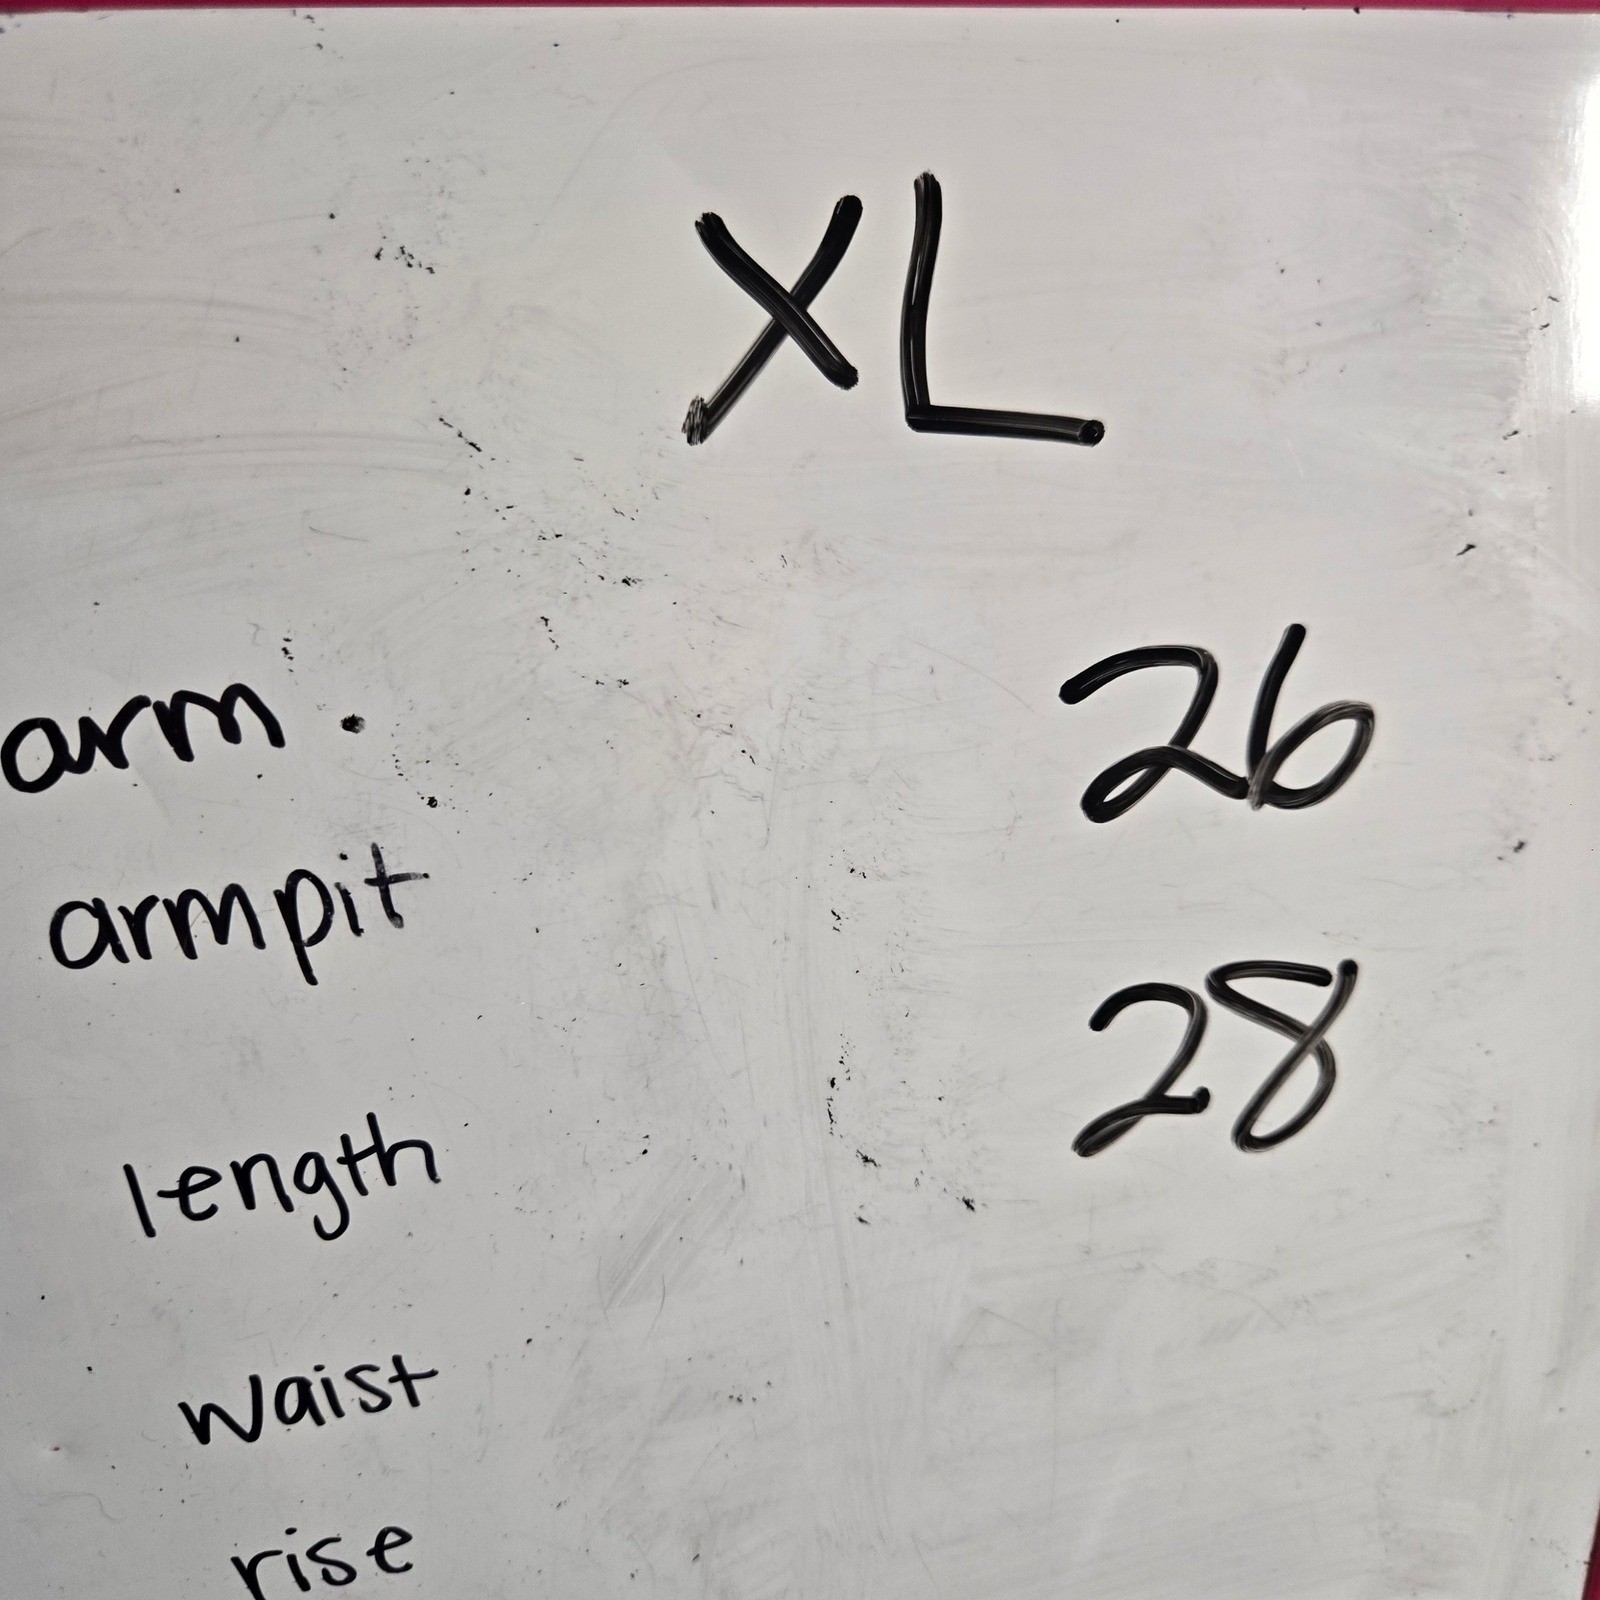 XL
arm . 26
armpit
28
length
waist
rise